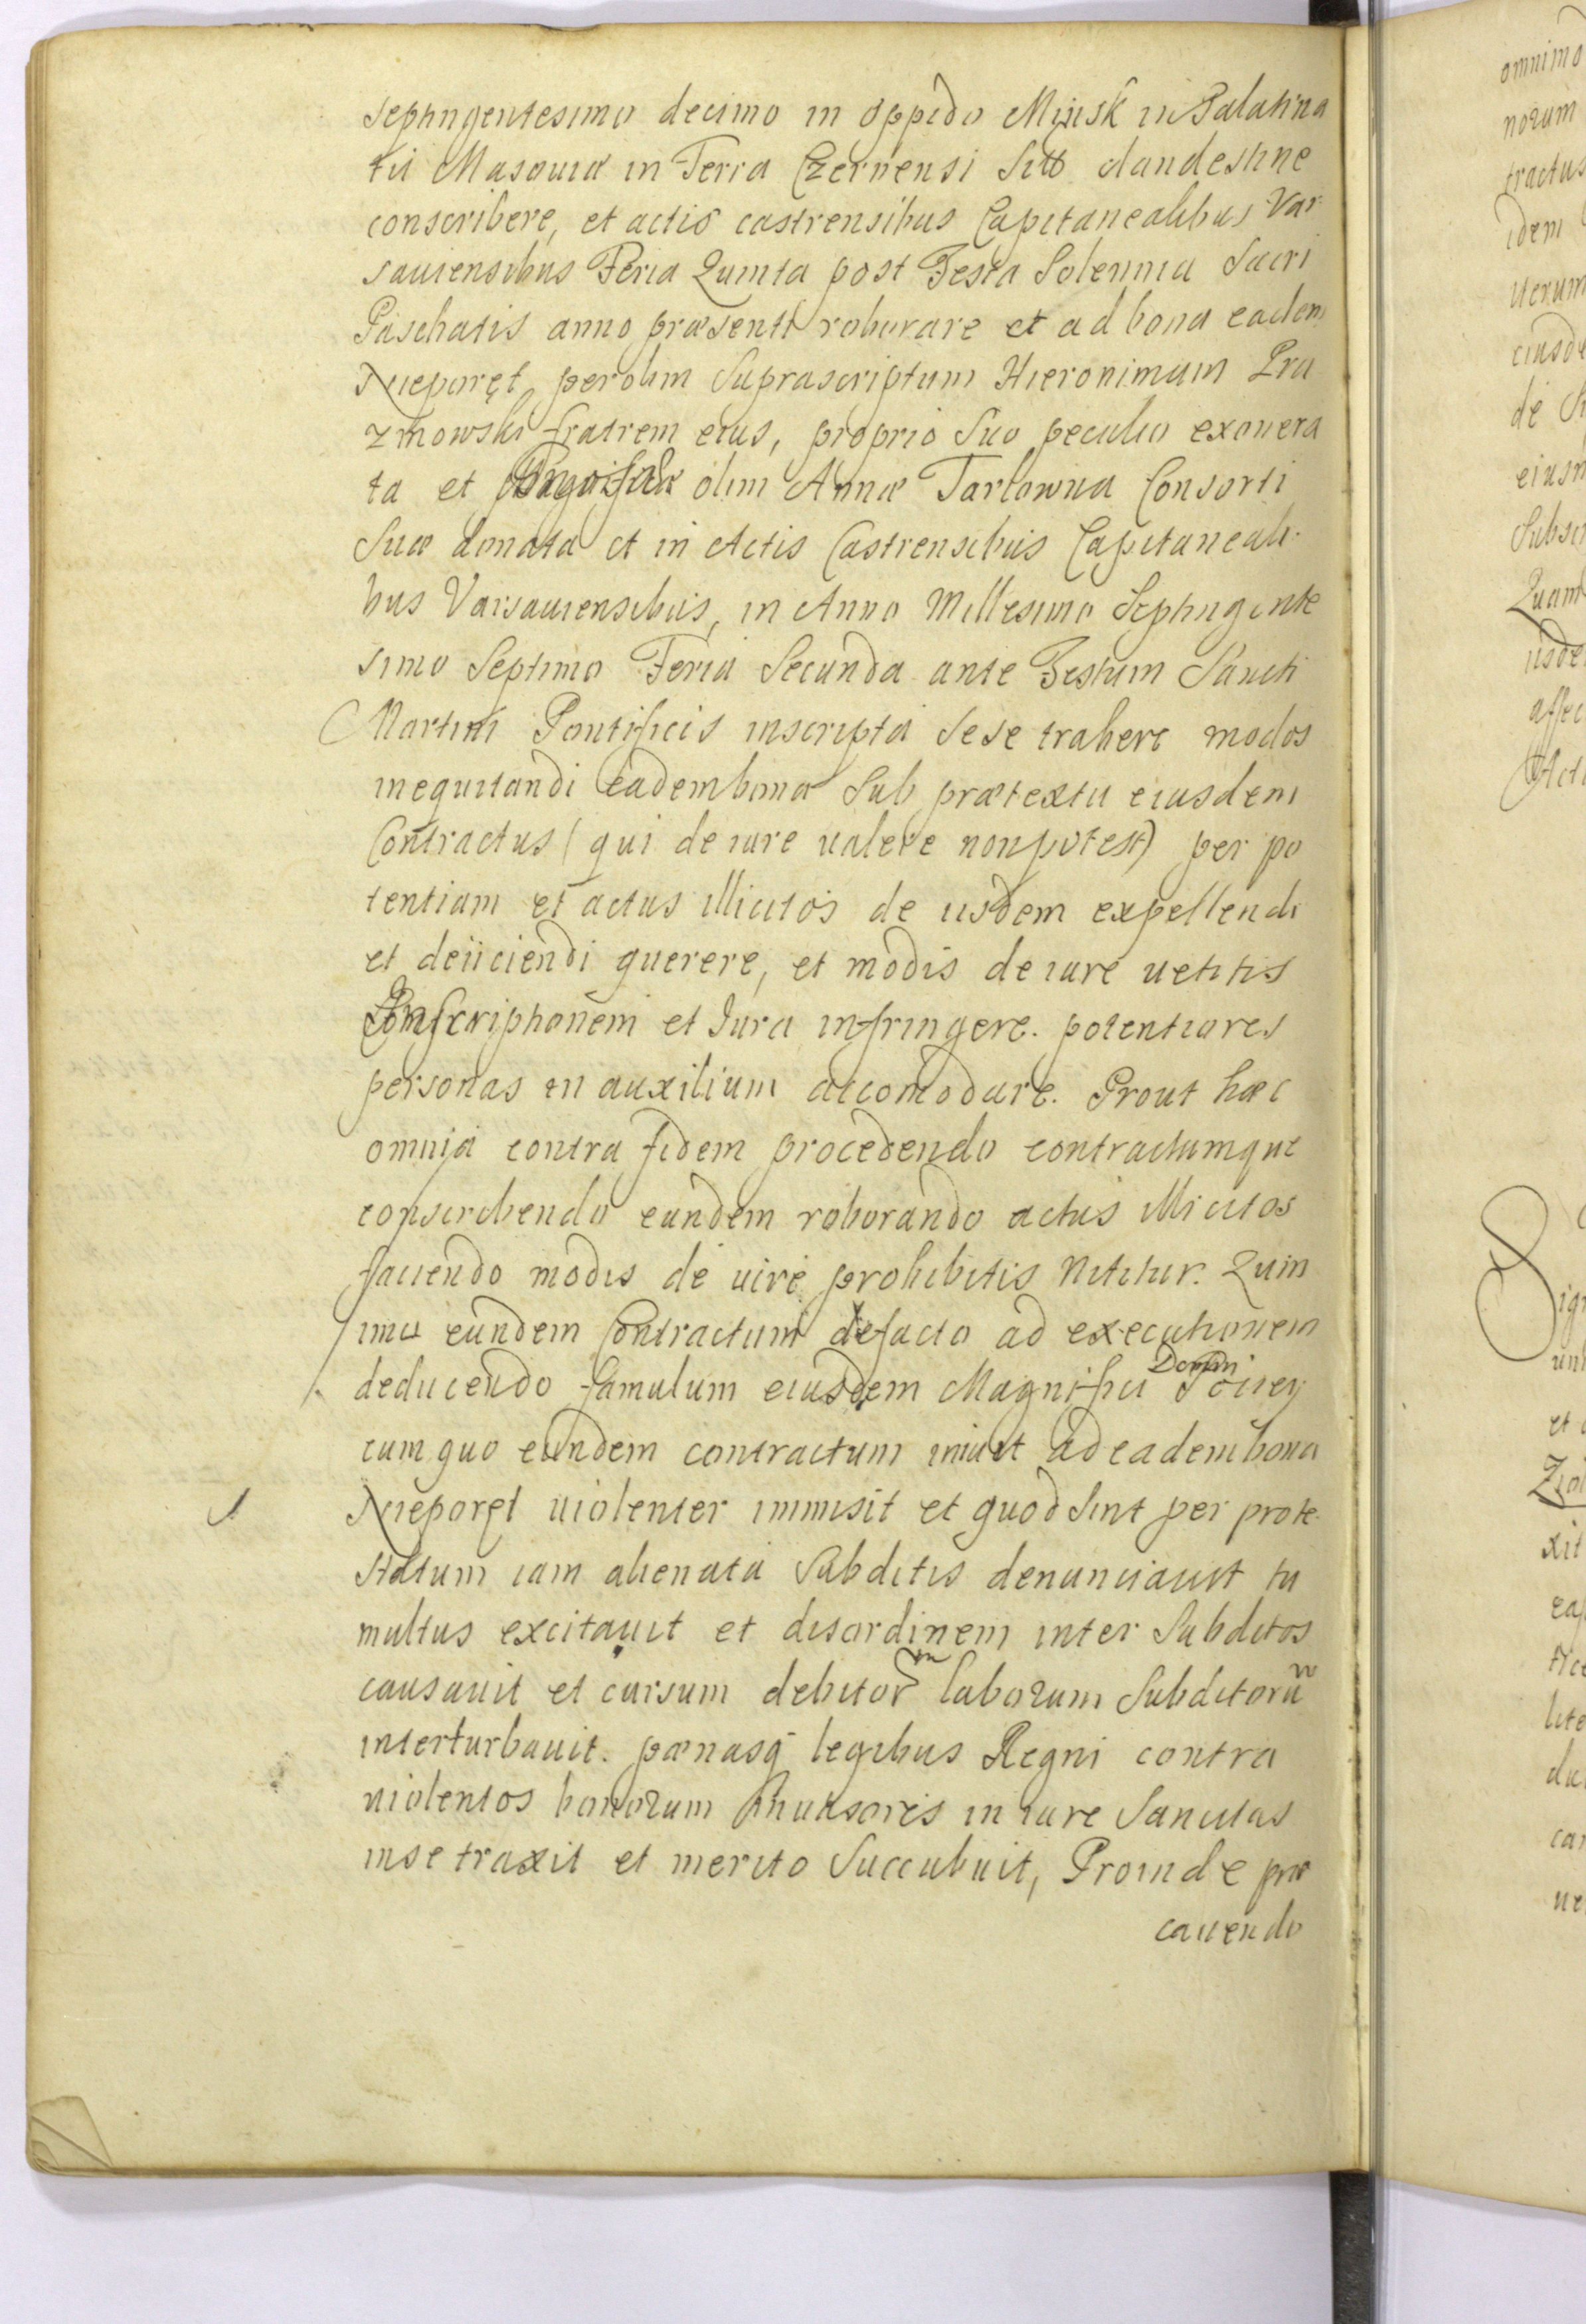 septingentesimo decimo in oppido Mińsk in Palatina
tu Masouiæ in Terra Czernensi Sito clandestine
conscribere, et actis castrensibus Capitanealibus Var
sauiensibus Feria Quinta post Festa Solennia Sacri
Paschatis anno præsenti roborare et ad bona eadem
Nieporęt per olim Suprascriptum Hieronimum Pra
zmowski fratrem eius, proprio Suo peculio exonera
ta et olim Annæ Tarlowna Consorti
Suæ donata et in Actis Castrensibus Capitaneali
bus Varsauiensibus, in Anno Millesimo Septingente
simo Septimo Feria Secunda ante Festum Sancti
Martini Pontificis inscripta sese trahere modos
inequitandi eadem bona Sub prætextu eiusdem
Contractus (qui de iure ualere non potest) per po
tentiam et actus illicitos de iisdem expellendi
et deiiciendi querere, et modis de iure uetitis
Inscriptionem et Jura infringere. potentiores
personas in auxilium accomodare. Prout hæc
omnia contra fidem procedendo contractumque
conscribendo eundem roborando actus illicitos
faciendo modis de iure prohibitis Nititur. Quin
imo eundem Contractum defacto ad executionem
deducendo famulum eiusdem Magnifici Domini
cum quo eundem contractum iniuit ad eadem bona
Nieporęt uiolenter immisit et quod Sint per prote
statum iam alienata Subditis denunciauit tu
multus excitauit et disordinem inter Subditos
causauit et cursum debitorum laborum Subditorum
interturbauit. pænasq legibus Regni contra
uiolentos bonorum Inuasores in iure Sancitas
in se traxit et merito Succubuit, Proinde præ
cauendo